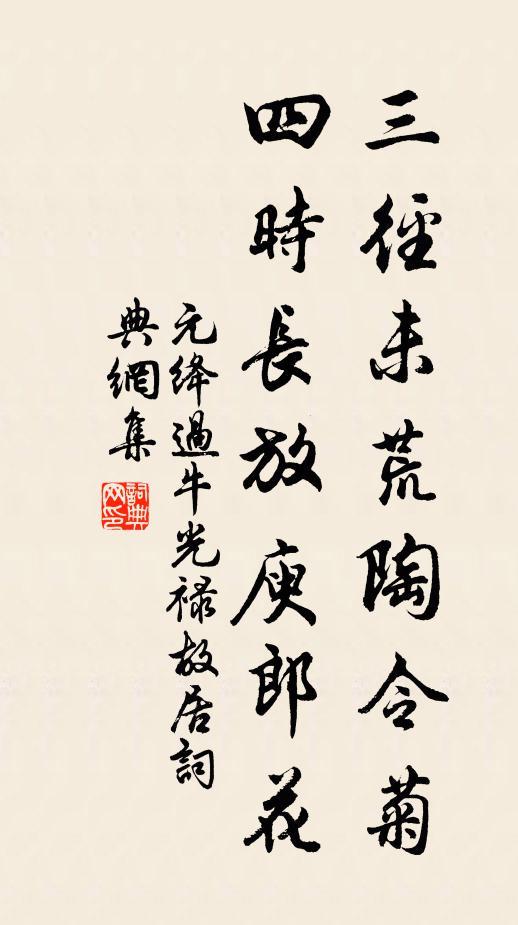 三徑未荒陶令菊
四時長放庾郎花
元絳過牛光祿故居詞
典網集
詞典
网印